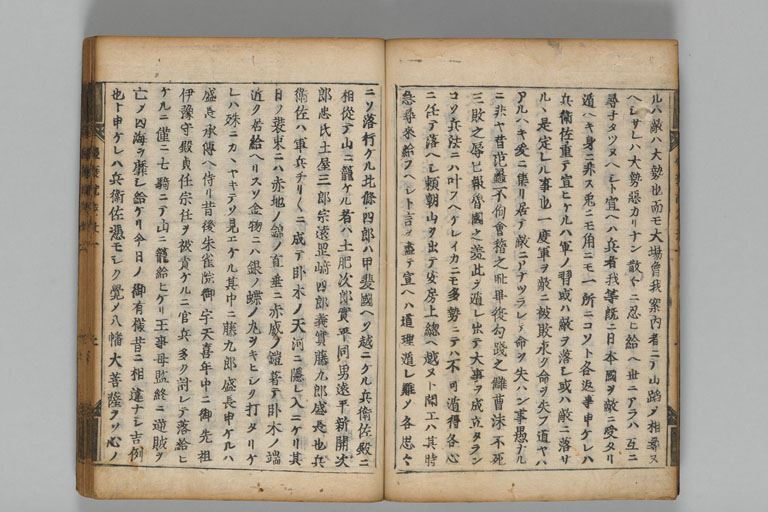 ルハ敵ハ大勢也而モ大場曾我案内者ニテ山蹈メ相尋ヌ
ヘシサレハ大勢悪カリナン散々ニ忍ヒ給ヘ世ニアラハ互ニ
尋子タツヌヘシト宣ヘハ兵者我等既ニ日本國ヲ敵ニ受タリ
遁ヘキ身ニ非ス兎ニモ角ニモ一所ニコソト各返事申ケレハ
兵衛佐重テ宣ヒケルハ軍ノ習或ハ敵ヲ落シ或ハ敵ニ落サ
ルヽ是定レル事也一度軍ヲ敵ニ被敗永ク命ヲ失フ道ヤハ
アルヘキ爰ニ集リ居テ敵ニアナツラレテ命ヲ失ハン事愚ナル
ニ非ヤ昔范蠡不佝會稽之耻畢復勾踐之讎曹沫不死
三敗之辱已報魯國之羞此ヲ遁レ出テ大事ヲ成立タラン
コソ兵法ニハ叶フヘケレイカニモ多勢ニテハ不可遁得各心
ニ任テ落ヘシ頼朝山ヲ出テ安房上總ヘ越ヌト聞エハ其時
急尋來給フヘシト言ヲ盡テ宣ヘハ道理遁レ難メ各思々
ニソ落行ケル北條四郎ハ甲斐國ヘソ越ニケル兵衛佐殿ニ
相從テ山ニ籠ケル者ハ土肥次郎實平同男遠平新開次
郎忠氏土屋三郎宗遠岡﨑四郎義實藤九郎盛長也兵
衛佐ハ軍兵チリ〱ニ成テ臥木ノ天河ニ隠レ入ニケリ其
日ノ裝束ニハ赤地ノ錦ノ直垂ニ赤威ノ鎧著テ臥木ノ端
近ク居給ヘリスソ金物ニハ銀ノ蝶ノ丸ヲキヒシク打タリケ
レハ殊ニカヽヤキテソ見エケル其中ニ藤九郎盛長申ケルハ
盛長承傳ヘ侍リ昔後朱雀院御宇天喜年中ニ御先祖
伊豫守殿貞任宗任ヲ被責ケルニ官兵多ク討レテ落給ヒ
ケルニ僅ニ七騎ニテ山ニ籠給ヒケリ王事毋監終ニ逆賊ヲ
亡メ四海ヲ靡シ給ケリ今日ノ御有様昔ニ相違ナシ吉例
也ト申ケレハ兵衛佐憑モシク覺メ八幡大菩薩ヲソ心ノ